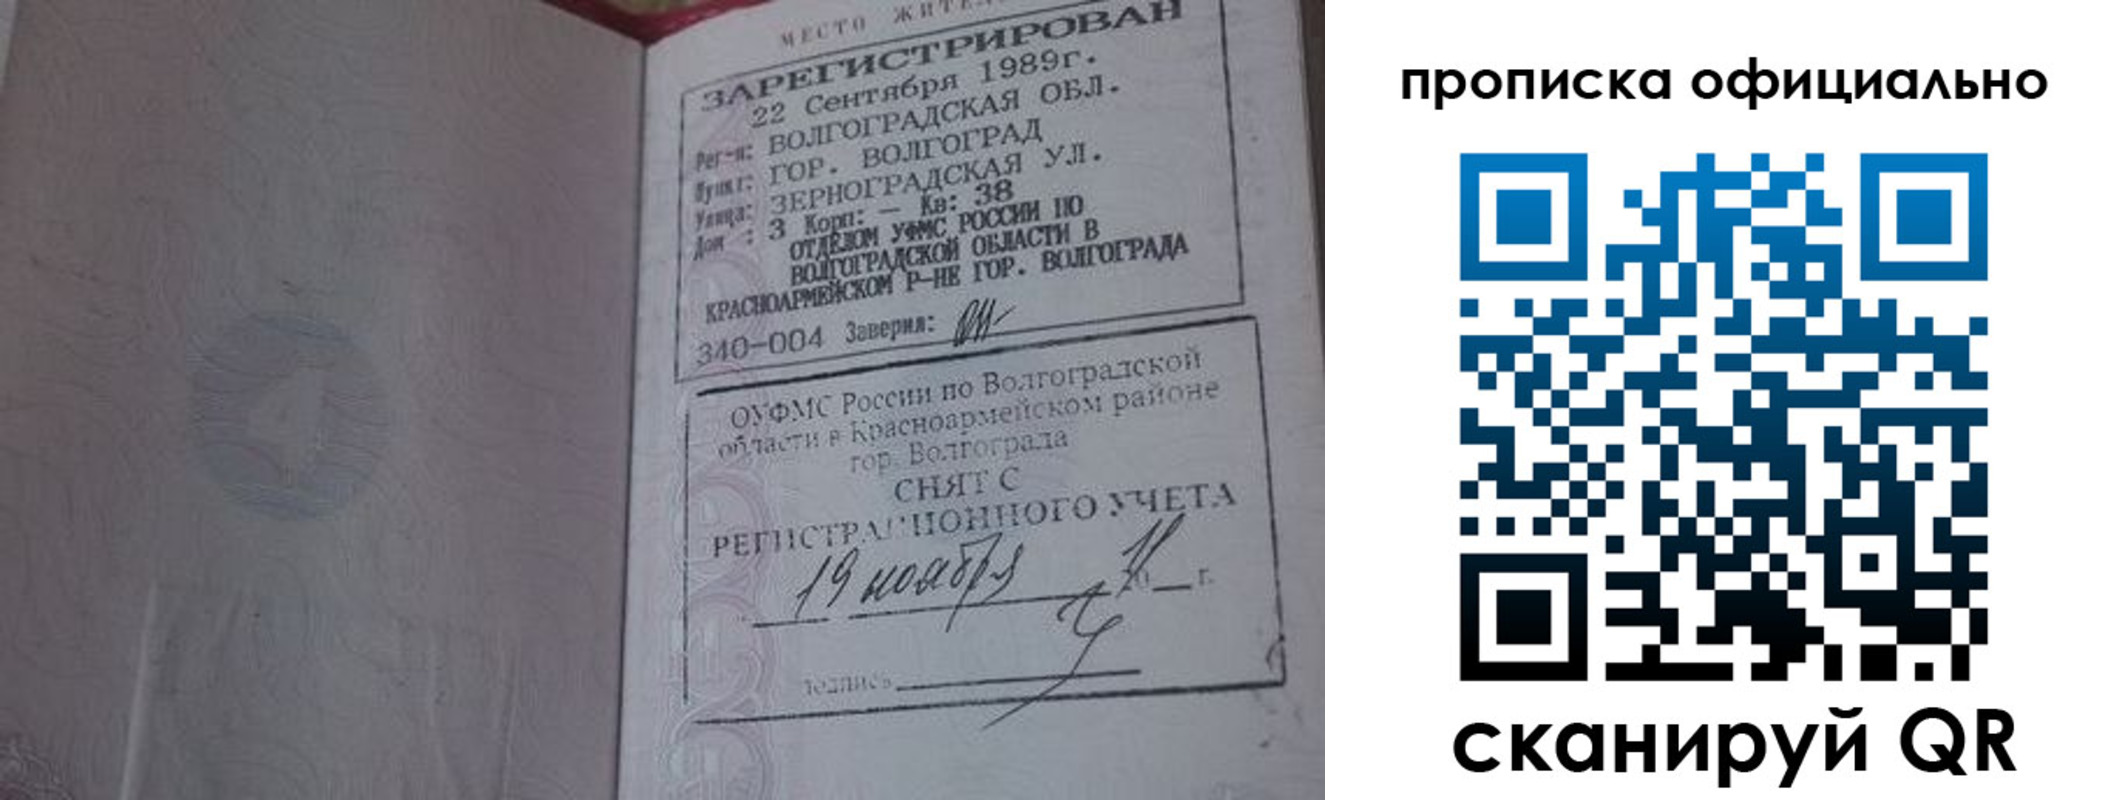 МЕСТО ЖИТЕЛ
ЗАРЕГИСТРИРОВАН
22 Сентября 1989г.
Рег-н: ВОЛГОГРАДСКАЯ ОБЛ.
Пункт: ГОР. ВОЛГОГРАД
Улица: ЗЕРНОГРАДСКАЯ УЛ.
Дом : 3 Корп: — Кв: 38
ОТДЕЛОМ УФМС РОССИИ ПО
ВОЛГОГРАДСКОЙ ОБЛАСТИ В
КРАСНОАРМЕЙСКОМ Р-НЕ ГОР. ВОЛГОГРАДА
340-004 Заверил:
ОУФМС России по Волгоградской
области в Красноармейском районе
гор. Волгограда
СНЯТ С
РЕГИСТРАЦИОННОГО УЧЕТА
19 ноября 20 г.
подпись
прописка официально
сканируй QR